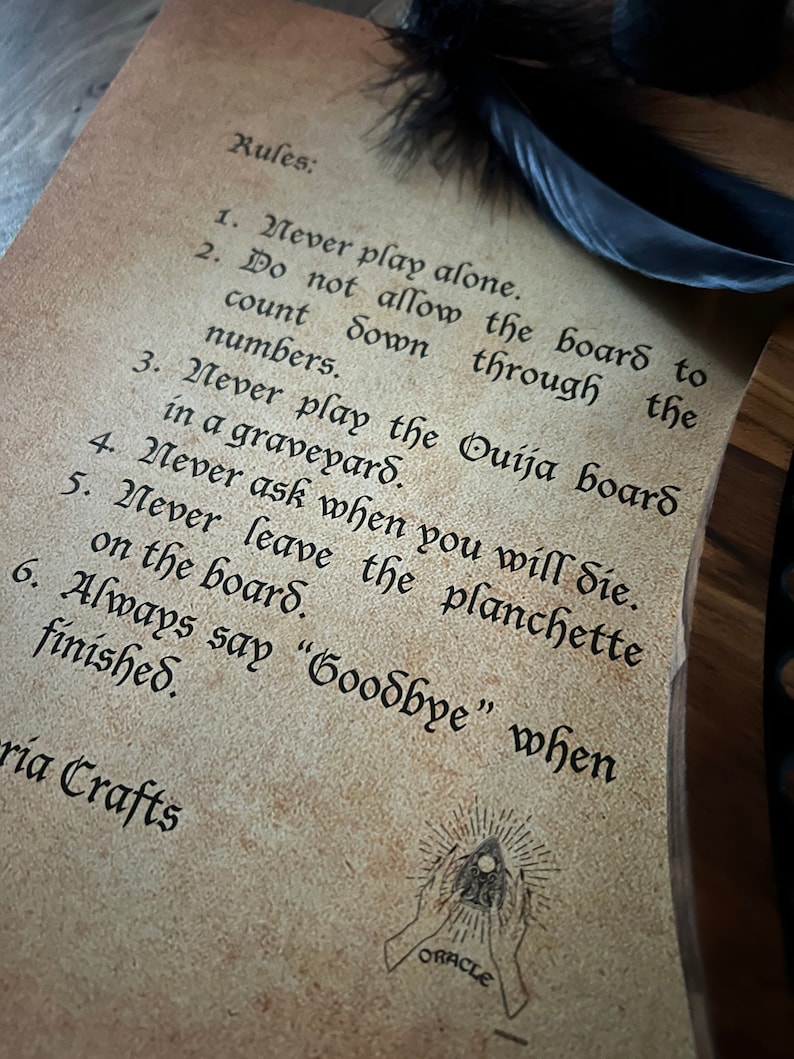 Rules:
1. Never play alone.
2. Do not allow the board to
count down through the
numbers.
3. Never play the Ouija board
in a graveyard.
4. Never ask when you will die.
5. Never leave the planchette
on the board.
6. Always say “Goodbye” when
finished.
Crafts
ORACLE